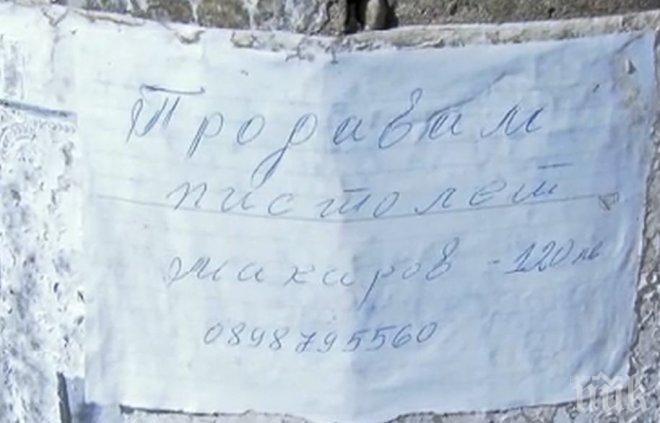 Продавам
пистолет
Макаров - 120 лв
0898795560
ПИК